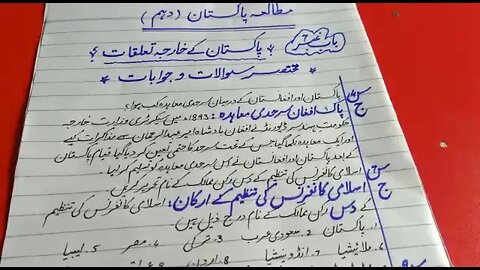 مطالعہ پاکستان (دہم)
باب نمبر 6
پاکستان کے خارجہ تعلقات؟
* مختصر سوالات و جوابات *
س پاکستان اور افغانستان کے درمیان سرحدی معاہدہ کب ہوا؟
ج پاک افغان سرحدی معاہدہ: 1893ء میں سیکرٹری وزارت خارجہ
حکومت ہند سر ڈیورنڈ نے افغان بادشاہ امیر عبدالرحمان سے مذاکرات کیے
اور ایک معاہدہ کیا گیا جس کے تحت سرحد کا حتمی تعین کر دیا گیا قیام پاکستان
کے بعد پاکستان اور افغانستان نے سرحدی معاہدہ کو تسلیم کر لیا۔
س اسلامی کانفرنس کی تنظیم کے دس رکن ممالک کے نام تحریر کریں
ج اسلامی کانفرنس کی تنظیم کے ارکان: اسلامی کانفرنس کی تنظیم
کے دس رکن ممالک کے نام درج ذیل ہیں
1۔ پاکستان 2۔ سعودی عرب 3۔ ترکی 4۔ مصر 5۔ لیبیا
6۔ ملائیشیا 7۔ انڈونیشیا 8۔ اردن